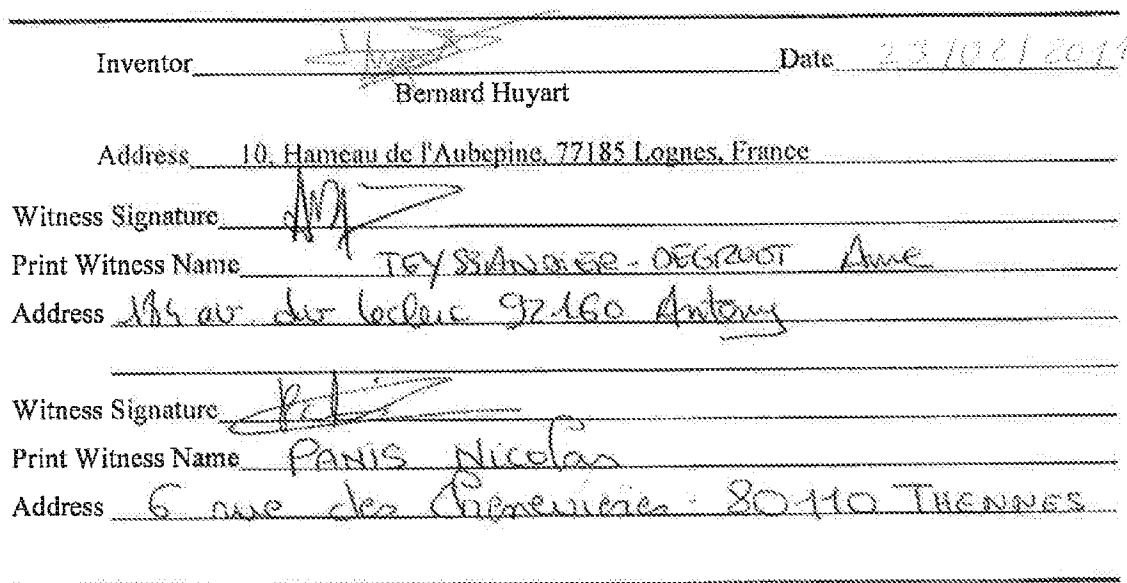 Inventor Date 23/02/201
Bernard Huyart
Address 10, Hameau de l'Aubepine, 77185 Lognes, France
Witness Signature
Print Witness Name TEYSSANDIER-DEGROOT Anne
Address av div leclerc 92160 Antony
Witness Signature
Print Witness Name PANIS Nicolas
Address 6 rue des Chenevieres - 80110 THENNES